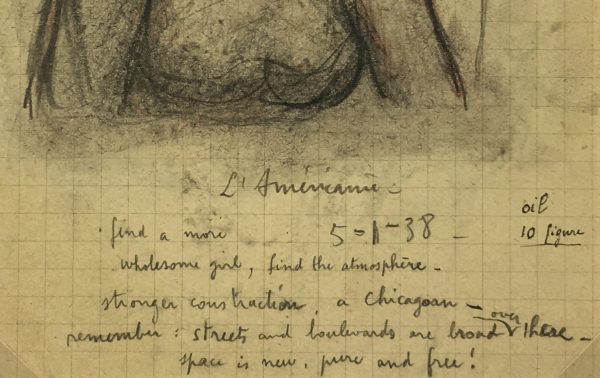 L'Américaine -
find a more 5-1-38 -
oil
10 figure
wholesome girl, find the atmosphère -
stronger construction, a Chicagoan -
remember : streets and boulevards are broad over there -
space is new, pure and free !